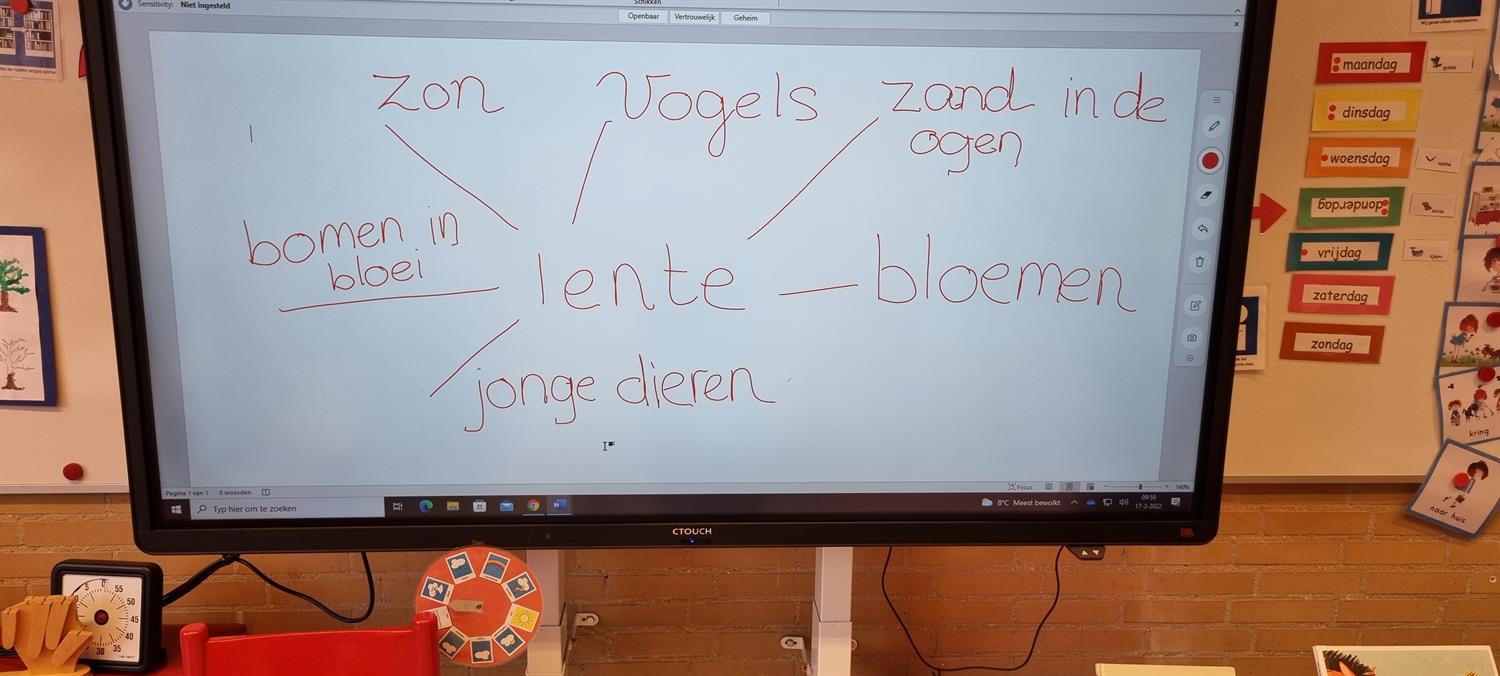 Sensitivity: Niet ingesteld
Schikken
Openbaar Vertrouwelijk Geheim
zon
Vogels
zand in de
ogen
bomen in
bloei
lente
bloemen
jonge dieren
Pagina 1 van 1 0 woorden
Focus
160%
Typ hier om te zoeken
8°C Meest bewolkt
09:59
17-3-2022
CTOUCH
JBL
maandag
dinsdag
woensdag
donderdag
vrijdag
zaterdag
zondag
kring
naar huis
5 0 55
50
45
40
35
30